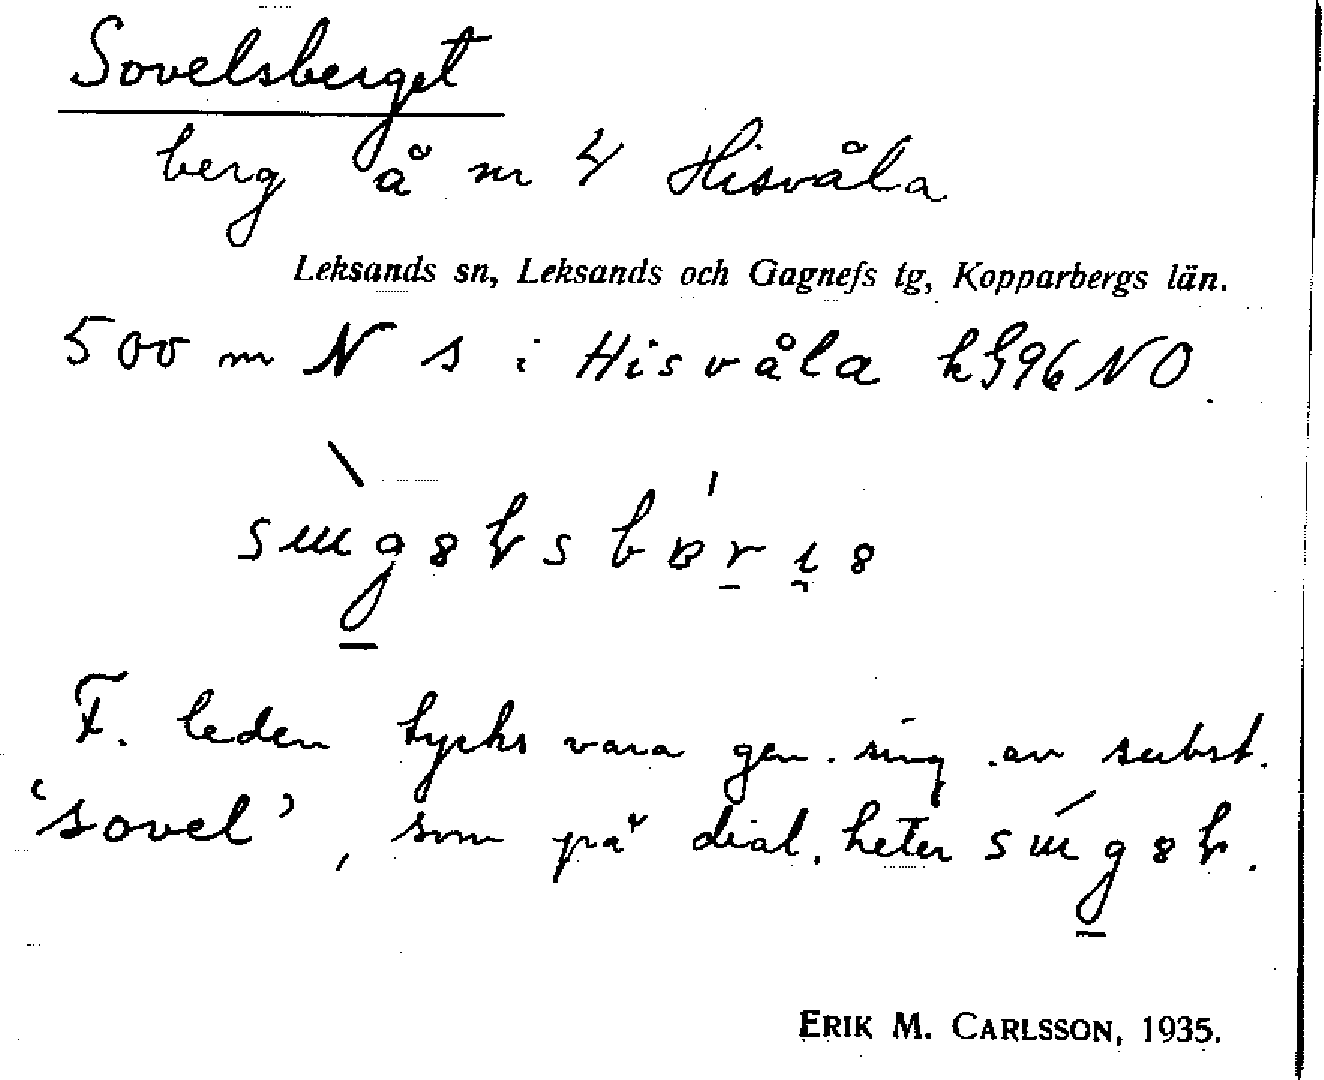 Sovelsberget
berg å nr 4 Hisvåla
Leksands sn, Leksands och Gagnefs tg, Kopparbergs län.
500 m N s i Hisvåla k 96 NO.
F. leden tycks vara gen. sing. av subst.
'sovel', som på dial. heter
ERIK M. CARLSSON, 1935.